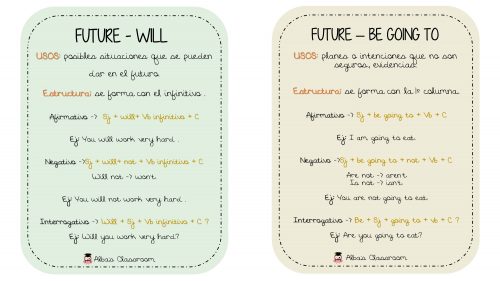 FUTURE - WILL
USOS: posibles situaciones que se pueden
dar en el futuro.
Estructura: se forma con el infinitivo .
Afirmativo -> Sj + will+ Vb infinitivo + C
Ej: You will work very hard .
Negativo ->Sj + will+ not + Vb infinitivo + C
Will not -> won't.
Ej: You will not work very hard .
Interrogativo -> Will + Sj + Vb infinitivo + C ?
Ej: Will you work very hard?
Alba's Classroom
FUTURE – BE GOING TO
USOS: planes o intenciones que no son
seguros, evidencias.
Estructura: se forma con la 1ª columna.
Afirmativo -> Sj + be going to + Vb + C
Ej: I am going to eat.
Negativo ->Sj + be going to + not + Vb + C
Are not -> aren't
Is not -> isn't.
Ej: You are not going to eat
Interrogativo -> Be + Sj + going to + vb + C ?
Ej: Are you going to eat?
Alba's Classroom